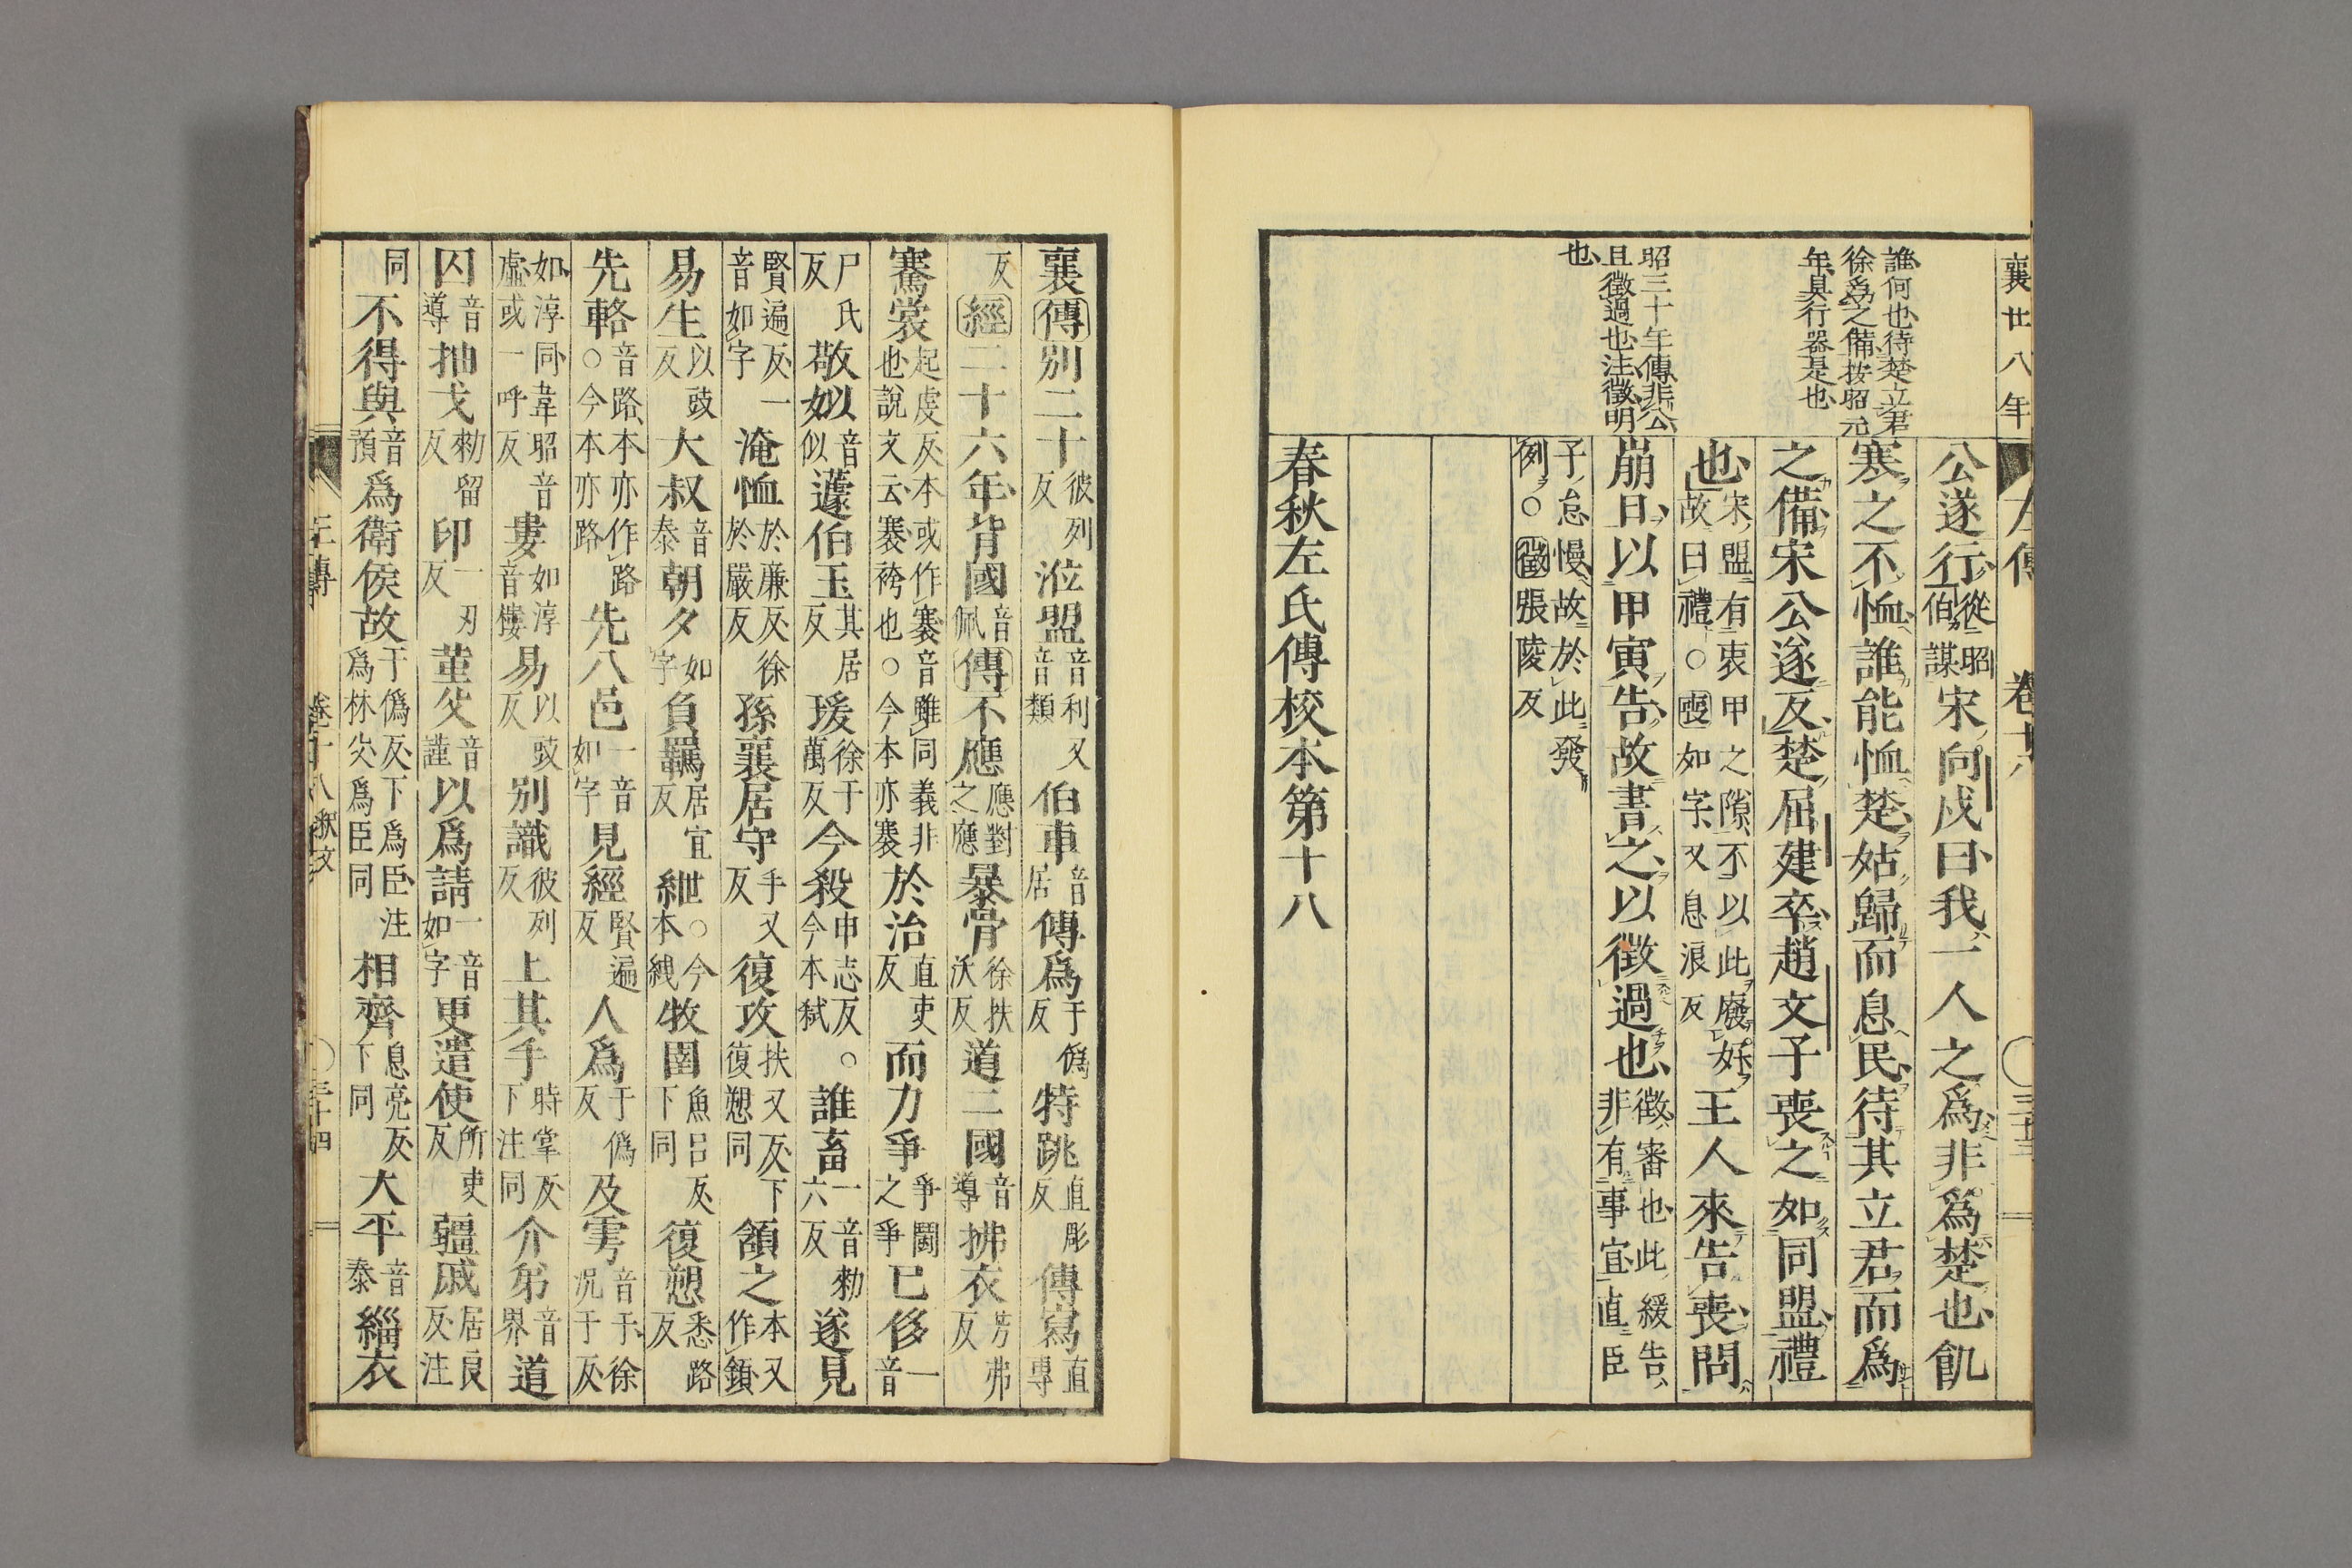 襄廿八年
左傳　卷十八　〇三十三
誰何也待楚立君
徐爲之備按昭元
年具行器是也
昭三十年傳非公
且徵過也注徵明
也
公遂行從昭伯謀宋向戌曰我一人之爲非爲楚也飢
寒之不恤誰能恤楚姑歸而息民待其立君而爲
之備宋公遂反楚屈建卒趙文子喪之如同盟禮
也宋盟有衷甲之隙不以此廢好故曰禮〇喪如字又息浪反王人來告喪問
崩日以甲寅告故書之以徵過也徵審也此緩告非有事宜直臣
子怠慢故於此發例〇徵張陵反
春秋左氏傳校本第十八
襄傳別二十彼列反涖盟音利又音類伯車音居傳爲于僞反特跳直彫反傳寫直專
反經二十六年背國音佩傳不應應對之應暴骨徐扶沃反道二國音導拂衣芳弗反
騫裳起虔反本或作褰音雖同義非也說文云褰袴也〇今本亦褰於治直吏反而力爭爭鬬之爭已侈一音
尸氏反敬姒音似蘧伯玉其居反瑗徐于萬反今殺申志反〇今本弑誰畜一音勑六反遂見
賢遍反一音如字淹恤於廉反徐於嚴反孫襄居守手又反復攻扶又反下復愬同頷之本又作頷
易生以豉反大叔音泰朝夕如字負羈居宜反紲〇今本絏牧圉魚呂反下同復愬悉路反
先輅音路本亦作路〇今本亦路先八邑一音如字見經賢遍反人爲于僞反及雩音于徐況于反
如淳同韋昭音虛或一呼反婁如淳音樓易以豉反別識彼列反上其手時掌反下注同介弟音界道
囚音導抽戈勑留反印一刃反菫父音謹以爲請一音如字更遣使所吏反疆戚居良反注
同不得與音預爲衛侯故于僞反下爲臣注爲林父爲臣同相齊息亮反下同大平音泰緇衣
左傳　卷十八釋文　〇三十四